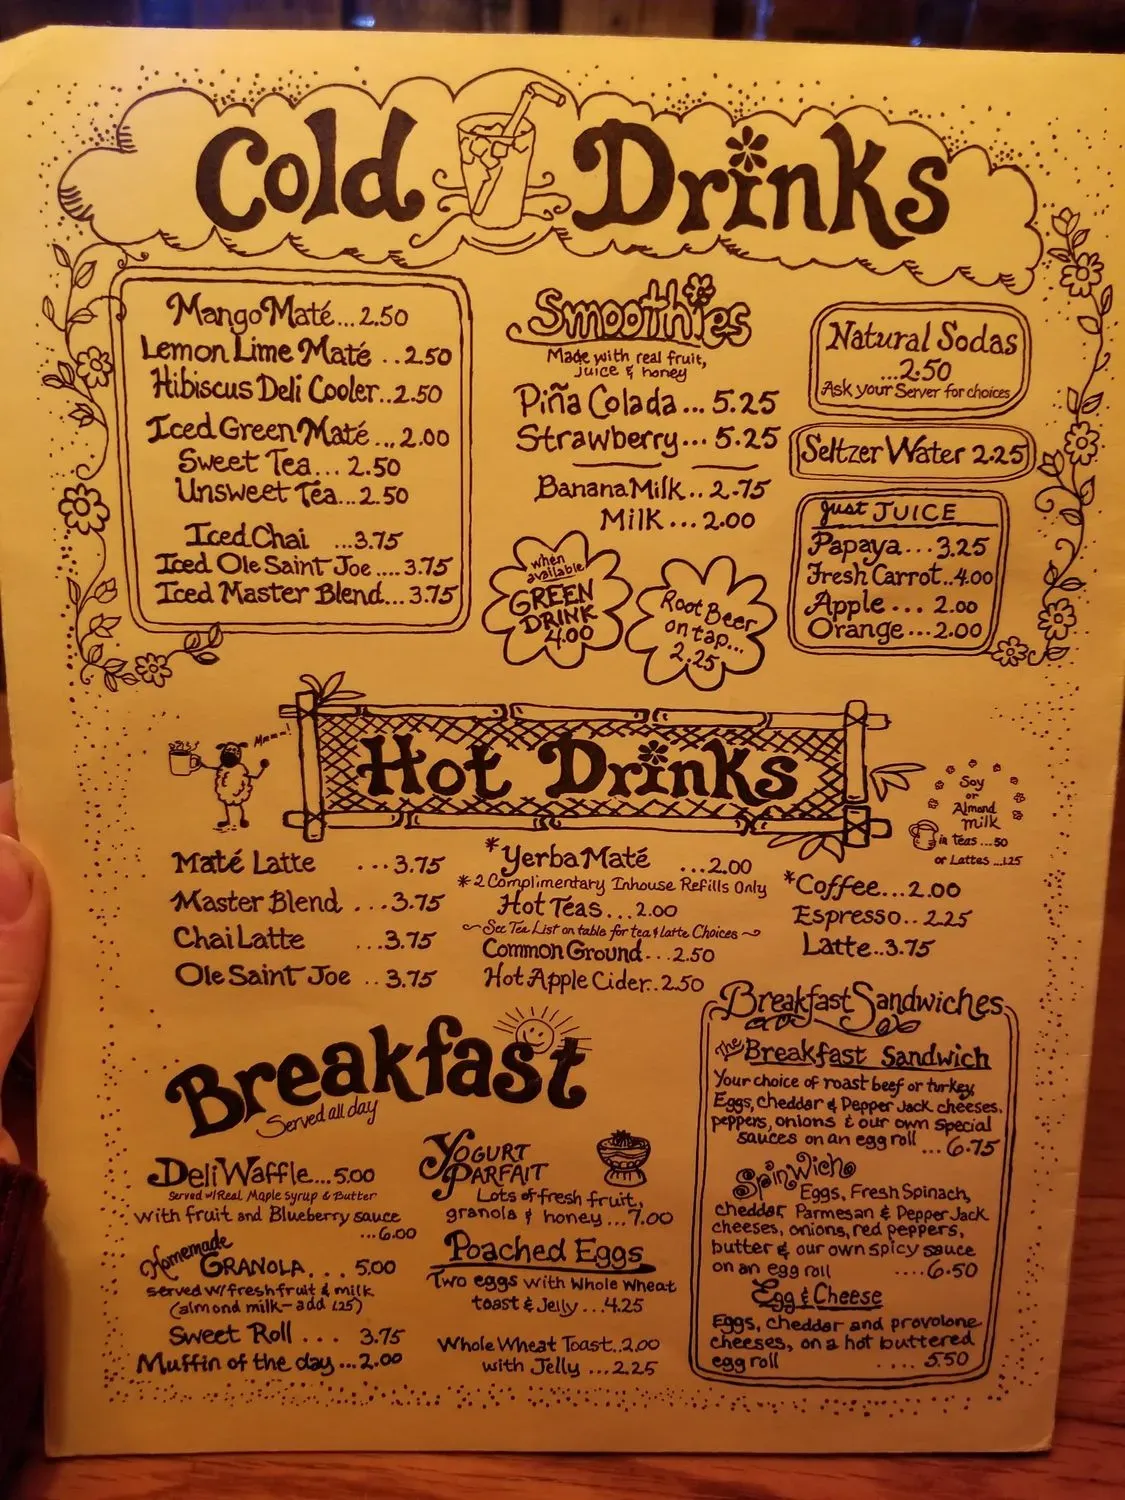 Cold Drinks
Mango Maté...2.50
Lemon Lime Maté ..2.50
Hibiscus Deli Cooler..2.50
Iced Green Maté...2.00
Sweet Tea...2.50
Unsweet Tea...2.50
Iced Chai ...3.75
Iced Ole Saint Joe....3.75
Iced Master Blend...3.75
Smoothies
Made with real fruit,
juice & honey
Piña Colada...5.25
Strawberry...5.25
Banana Milk..2.75
Milk...2.00
when
available
GREEN
DRINK
4.00
Root Beer
on tap...
2.25
Natural Sodas
...2.50
Ask your Server for choices
Seltzer Water 2.25
Just JUICE
Papaya...3.25
Fresh Carrot..4.00
Apple... 2.00
Orange...2.00
Mmm-!
Hot Drinks
Soy
or
Almond
Milk
in teas ....50
or Lattes ...1.25
Maté Latte ...3.75
Master Blend ...3.75
Chai Latte ...3.75
Ole Saint Joe ..3.75
*Yerba Maté ...2.00
*2 Complimentary Inhouse Refills Only
Hot Teas...2.00
~See Tea List on table for tea & latte Choices~
Common Ground...2.50
Hot Apple Cider..2.50
*Coffee...2.00
Espresso..2.25
Latte..3.75
Breakfast
Served all day
Deli Waffle...5.00
Served w/Real Maple Syrup & Butter
with fruit and Blueberry sauce
...6.00
Homemade
GRANOLA... 5.00
served w/fresh fruit & milk
(almond milk-add 1.25)
Sweet Roll ... 3.75
Muffin of the day...2.00
YOGURT
PARFAIT
Lots of fresh fruit,
granola & honey...7.00
Poached Eggs
Two eggs with whole wheat
toast & Jelly ...4.25
Whole Wheat Toast..2.00
with Jelly ...2.25
Breakfast Sandwiches
The Breakfast Sandwich
Your choice of roast beef or turkey,
Eggs, cheddar & Pepper Jack cheeses,
peppers, onions & our own special
sauces on an egg roll ...6.75
Spinwich
Eggs, Fresh Spinach,
cheddar, Parmesan & Pepper Jack
cheeses, onions, red peppers,
butter & our own spicy sauce
on an egg roll ....6.50
Egg & Cheese
Eggs, cheddar and provolone
cheeses, on a hot buttered
egg roll .... 5.50